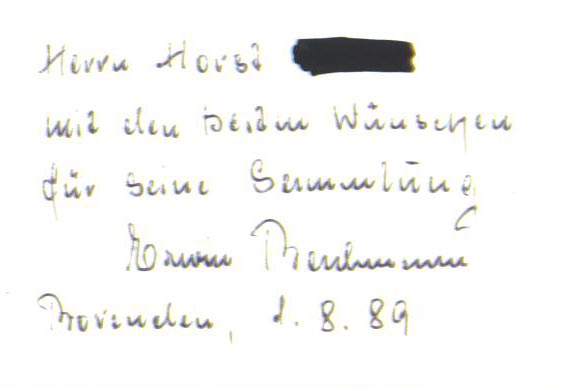 Herrn Horst
mit den besten Wünschen
für seine Sammlung
Erwin
Bovenden, 1. 8. 89